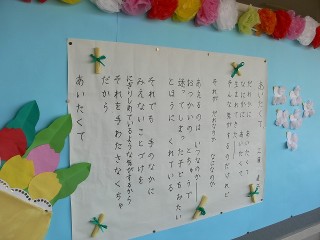 あいたくて 工藤直子
だれかに あいたくて
なにかに あいたくて
生まれてきた——
そんな気がするのだけれど
それが だれなのか なになのか
あえるのは いつなのか——
おつかいの とちゅうで
迷ってしまった 子どもみたい
とほうに くれている
それでも 手のなかに
みえないことづけを
にぎりしめているような気がするから
それを手わたさなくちゃ
だから
あいたくて